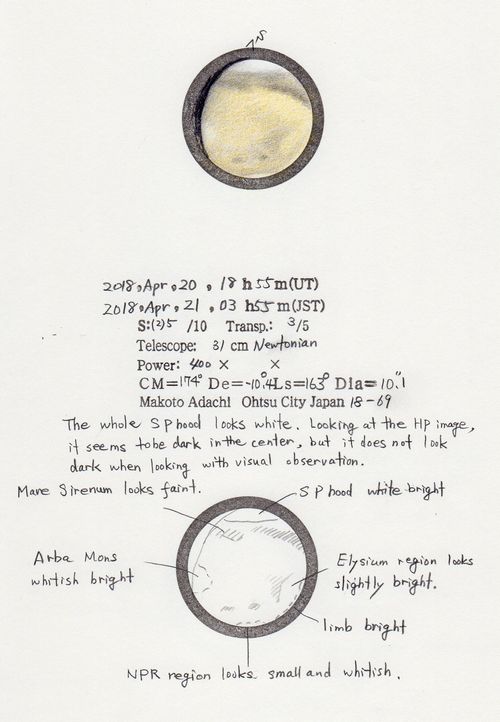 S
2018, Apr, 20, 18 h 55 m (UT)
2018, Apr, 21, 03 h 55 m (JST)
S: (2)5 /10 Transp.: 3/5
Telescope: 31 cm Newtonian
Power: 400 × ×
CM=174° De=-10.4 Ls=163° Dia=10."1
Makoto Adachi Ohtsu City Japan 18-69
The whole S P hood looks white. Looking at the HP image,
it seems to be dark in the center, but it does not look
dark when looking with visual observation.
Mare Sirenum looks faint.
S P hood white bright
Arba Mons
whitish bright
Elysium region looks
slightly bright.
limb bright
NPR region looks small and whitish.